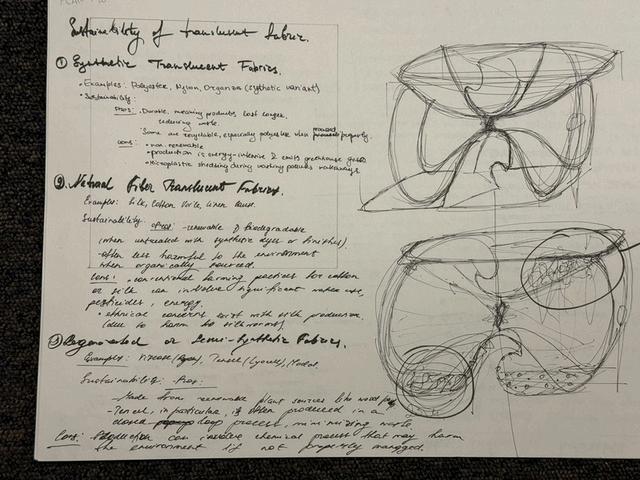 Sustainability of translucent fabric.
① Synthetic Translucent Fabrics.
• Examples: Polyester, Nylon, Organza (sythetic variant)
• Sustainability:
Pros: • Durable, meaning products last longer,
reducing waste.
Some are recyclable, especially polyester when processed properly.
Cons: • non-renewable
• production is energy-intensive & emits greenhouse gases
• Microplastic shedding during washing pollutes waterways
② Natural Fiber Translucent Fabrics.
Examples: Silk, Cotton Voile, Linen
Sustainability: Pros: - renewable & biodegradable
(when untreated with synthetic dyes or finishes).
- often less harmful to the environment
when organically sourced.
Cons: • conventional farming practices for cotton
or silk can involve significant water use,
pesticides, energy.
• ethnical concerns exist with silk production
(due to harm to silkworms).
③ Regenerated or Semi-Synthetic Fabrics.
Examples: Viscose (Rayon), Tencel (Lyocell), Modal.
Sustainability: Pros:
- Made from renewable plant sources like wood pulp
- Tencel, in particular, is often produced in a
closed loop process, minimizing waste.
Cons: Production can involve chemical process that may harm
the environment if not properly managed.